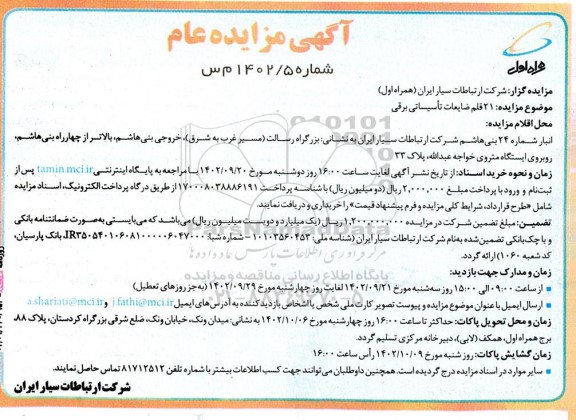 آگهی مزایده عام
شماره ۱۴۰۲/۵ م س
همراه اول
مزایده گزار: شرکت ارتباطات سیار ایران (همراه اول)
موضوع مزایده: ۲۱ قلم ضایعات تأسیساتی برقی
محل اقلام مزایده:
انبار شماره ۲۴ بنی‌هاشم شرکت ارتباطات سیار ایران به نشانی: بزرگراه رسالت (مسیر غرب به شرق)، خروجی بنی‌هاشم، بالاتر از چهارراه بنی‌هاشم،
روبروی ایستگاه متروی خواجه عبدالله، پلاک ۳۳
زمان و نحوه خرید اسناد: از تاریخ نشر آگهی لغایت ساعت ۱۶:۰۰ روز دوشنبه مورخ ۱۴۰۲/۰۹/۲۰ با مراجعه به پایگاه اینترنتی tamin.mci.ir پس از
ثبت‌نام و ورود با پرداخت مبلغ ۲,۰۰۰,۰۰۰ ریال (دو میلیون ریال) با شناسه پرداخت ۱۷۰۰۰۸۰۳۸۸۸۶۱۹۱ از طریق درگاه پرداخت الکترونیک، اسناد مزایده
شامل «طرح قرارداد، شرایط کلی مزایده و فرم پیشنهاد قیمت» را خریداری و دریافت نمایند.
تضمین: مبلغ تضمین شرکت در مزایده ۱,۲۰۰,۰۰۰,۰۰۰ ریال (یک میلیارد و دویست میلیون ریال) می‌باشد که می‌بایستی به‌صورت ضمانتنامه بانکی
و یا چک بانکی تضمین‌شده به‌نام شرکت ارتباطات سیار ایران (شناسه ملی: ۱۰۱۰۳۵۶۰۴۵۳ - شماره شبا: IR۳۵۰۵۴۰۱۰۶۸۱۰۰۰۰۰۶۰۴۷۰۰۰، بانک پارسیان،
کد شعبه ۱۰۶۰) ارائه گردد.
زمان و مدارک جهت بازدید:
• از ساعت ۰۹:۰۰ الی ۱۵:۰۰ روز سه‌شنبه مورخ ۱۴۰۲/۰۹/۲۱ لغایت روز چهارشنبه مورخ ۱۴۰۲/۰۹/۲۹ (به‌جز روزهای تعطیل)
• ارسال ایمیل با عنوان موضوع مزایده و پیوست تصویر کارت ملی شخص یا اشخاص بازدیدکننده به آدرس‌های ایمیل j.fathi@mci.ir و a.shariati@mci.ir
زمان و محل تحویل پاکات: حداکثر تا ساعت ۱۶:۰۰ روز چهارشنبه مورخ ۱۴۰۲/۱۰/۰۶ به نشانی: میدان ونک، خیابان ونک، ضلع شرقی بزرگراه کردستان، پلاک ۸۸،
برج همراه اول، همکف (لابی)، دبیرخانه مرکزی تسلیم گردد.
زمان گشایش پاکات: روز شنبه مورخ ۱۴۰۲/۱۰/۰۹ رأس ساعت ۱۶:۰۰
• سایر موارد در اسناد مزایده درج گردیده است. همچنین داوطلبان می‌توانند جهت کسب اطلاعات بیشتر با شماره تلفن ۸۱۷۱۲۵۱۲ تماس حاصل نمایند.
شرکت ارتباطات سیار ایران
ParsNamadData
پایگاه اطلاع رسانی مناقصه و مزایده